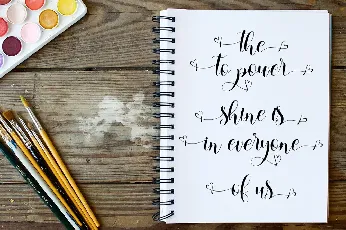 the
to power
shine is
in everyone
of us